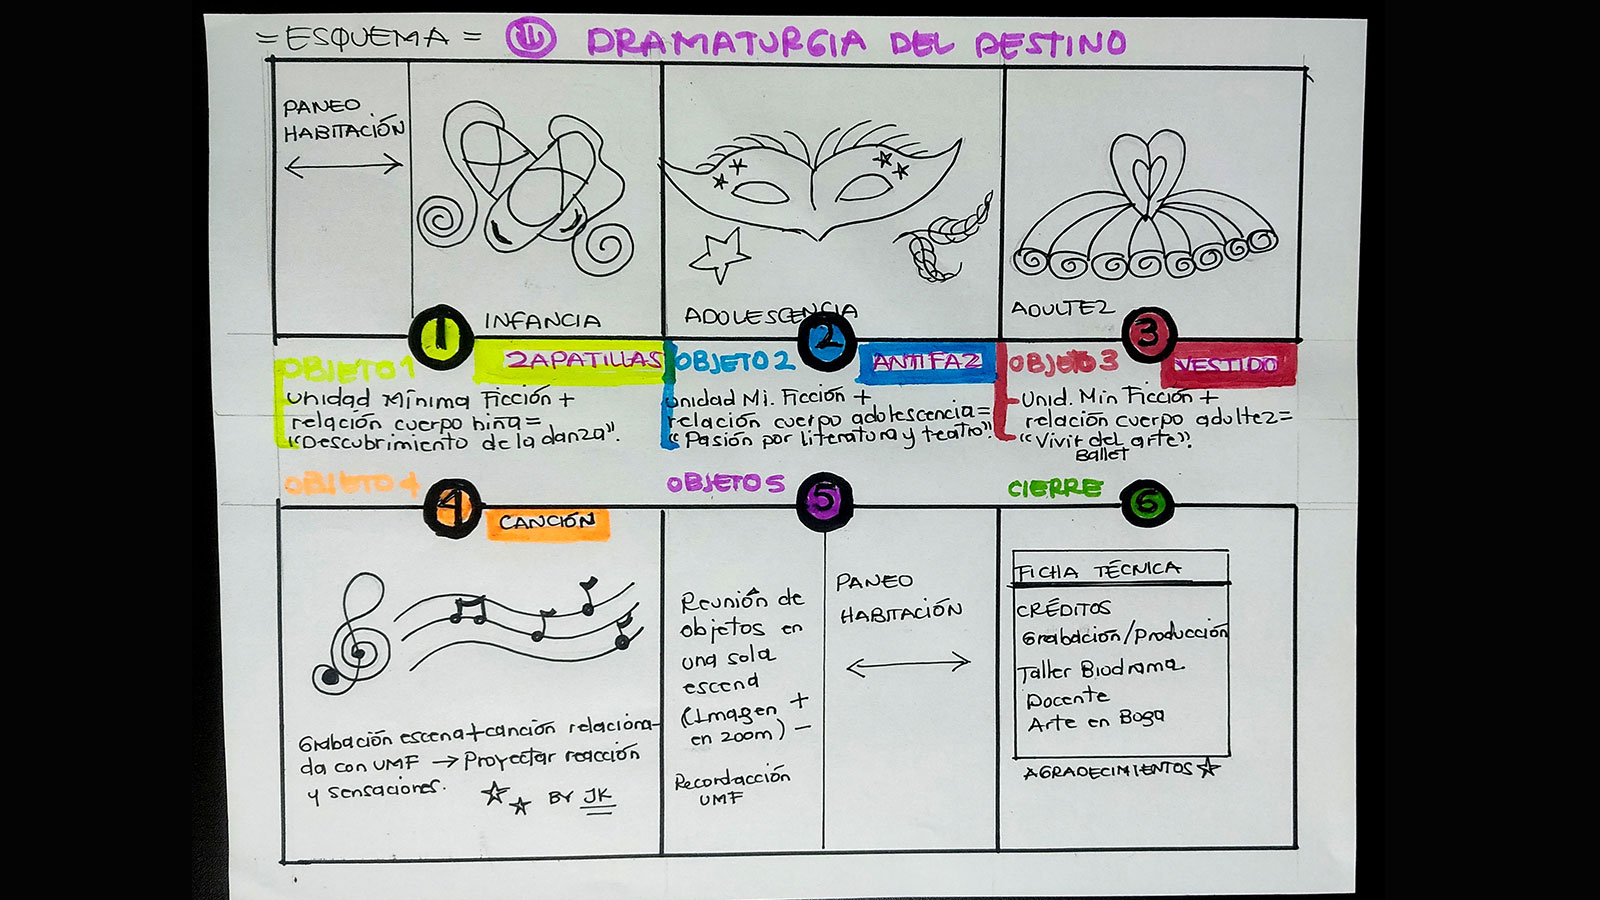 = ESQUEMA = DRAMATURGIA DEL DESTINO
PANEO
HABITACIÓN
1 INFANCIA
ADOLESCENCIA
2
ADULTEZ
3
OBJETO 1 ZAPATILLAS
Unidad Mínima Ficción +
relación cuerpo niña =
"Descubrimiento de la danza".
OBJETO 2 ANTIFAZ
Unidad Mi. Ficción +
relación cuerpo adolescencia =
"Pasión por literatura y teatro".
OBJETO 3 VESTIDO
Unid. Min Ficción +
relación cuerpo adultez =
"Vivir del arte".
Ballet
OBJETO 4
4 CANCIÓN
Grabación escena + canción relaciona-
da con UMF → Proyectar reacción
y sensaciones.
BY JK
OBJETO 5
5
Reunión de
objetos en
una sola
escena
(Imagen +
en zoom) -
Recordacción
UMF
PANEO
HABITACIÓN
CIERRE
6
FICHA TÉCNICA
CRÉDITOS
Grabación/Producción
Taller Biodrama
Docente
Arte en Boga
AGRADECIMIENTOS